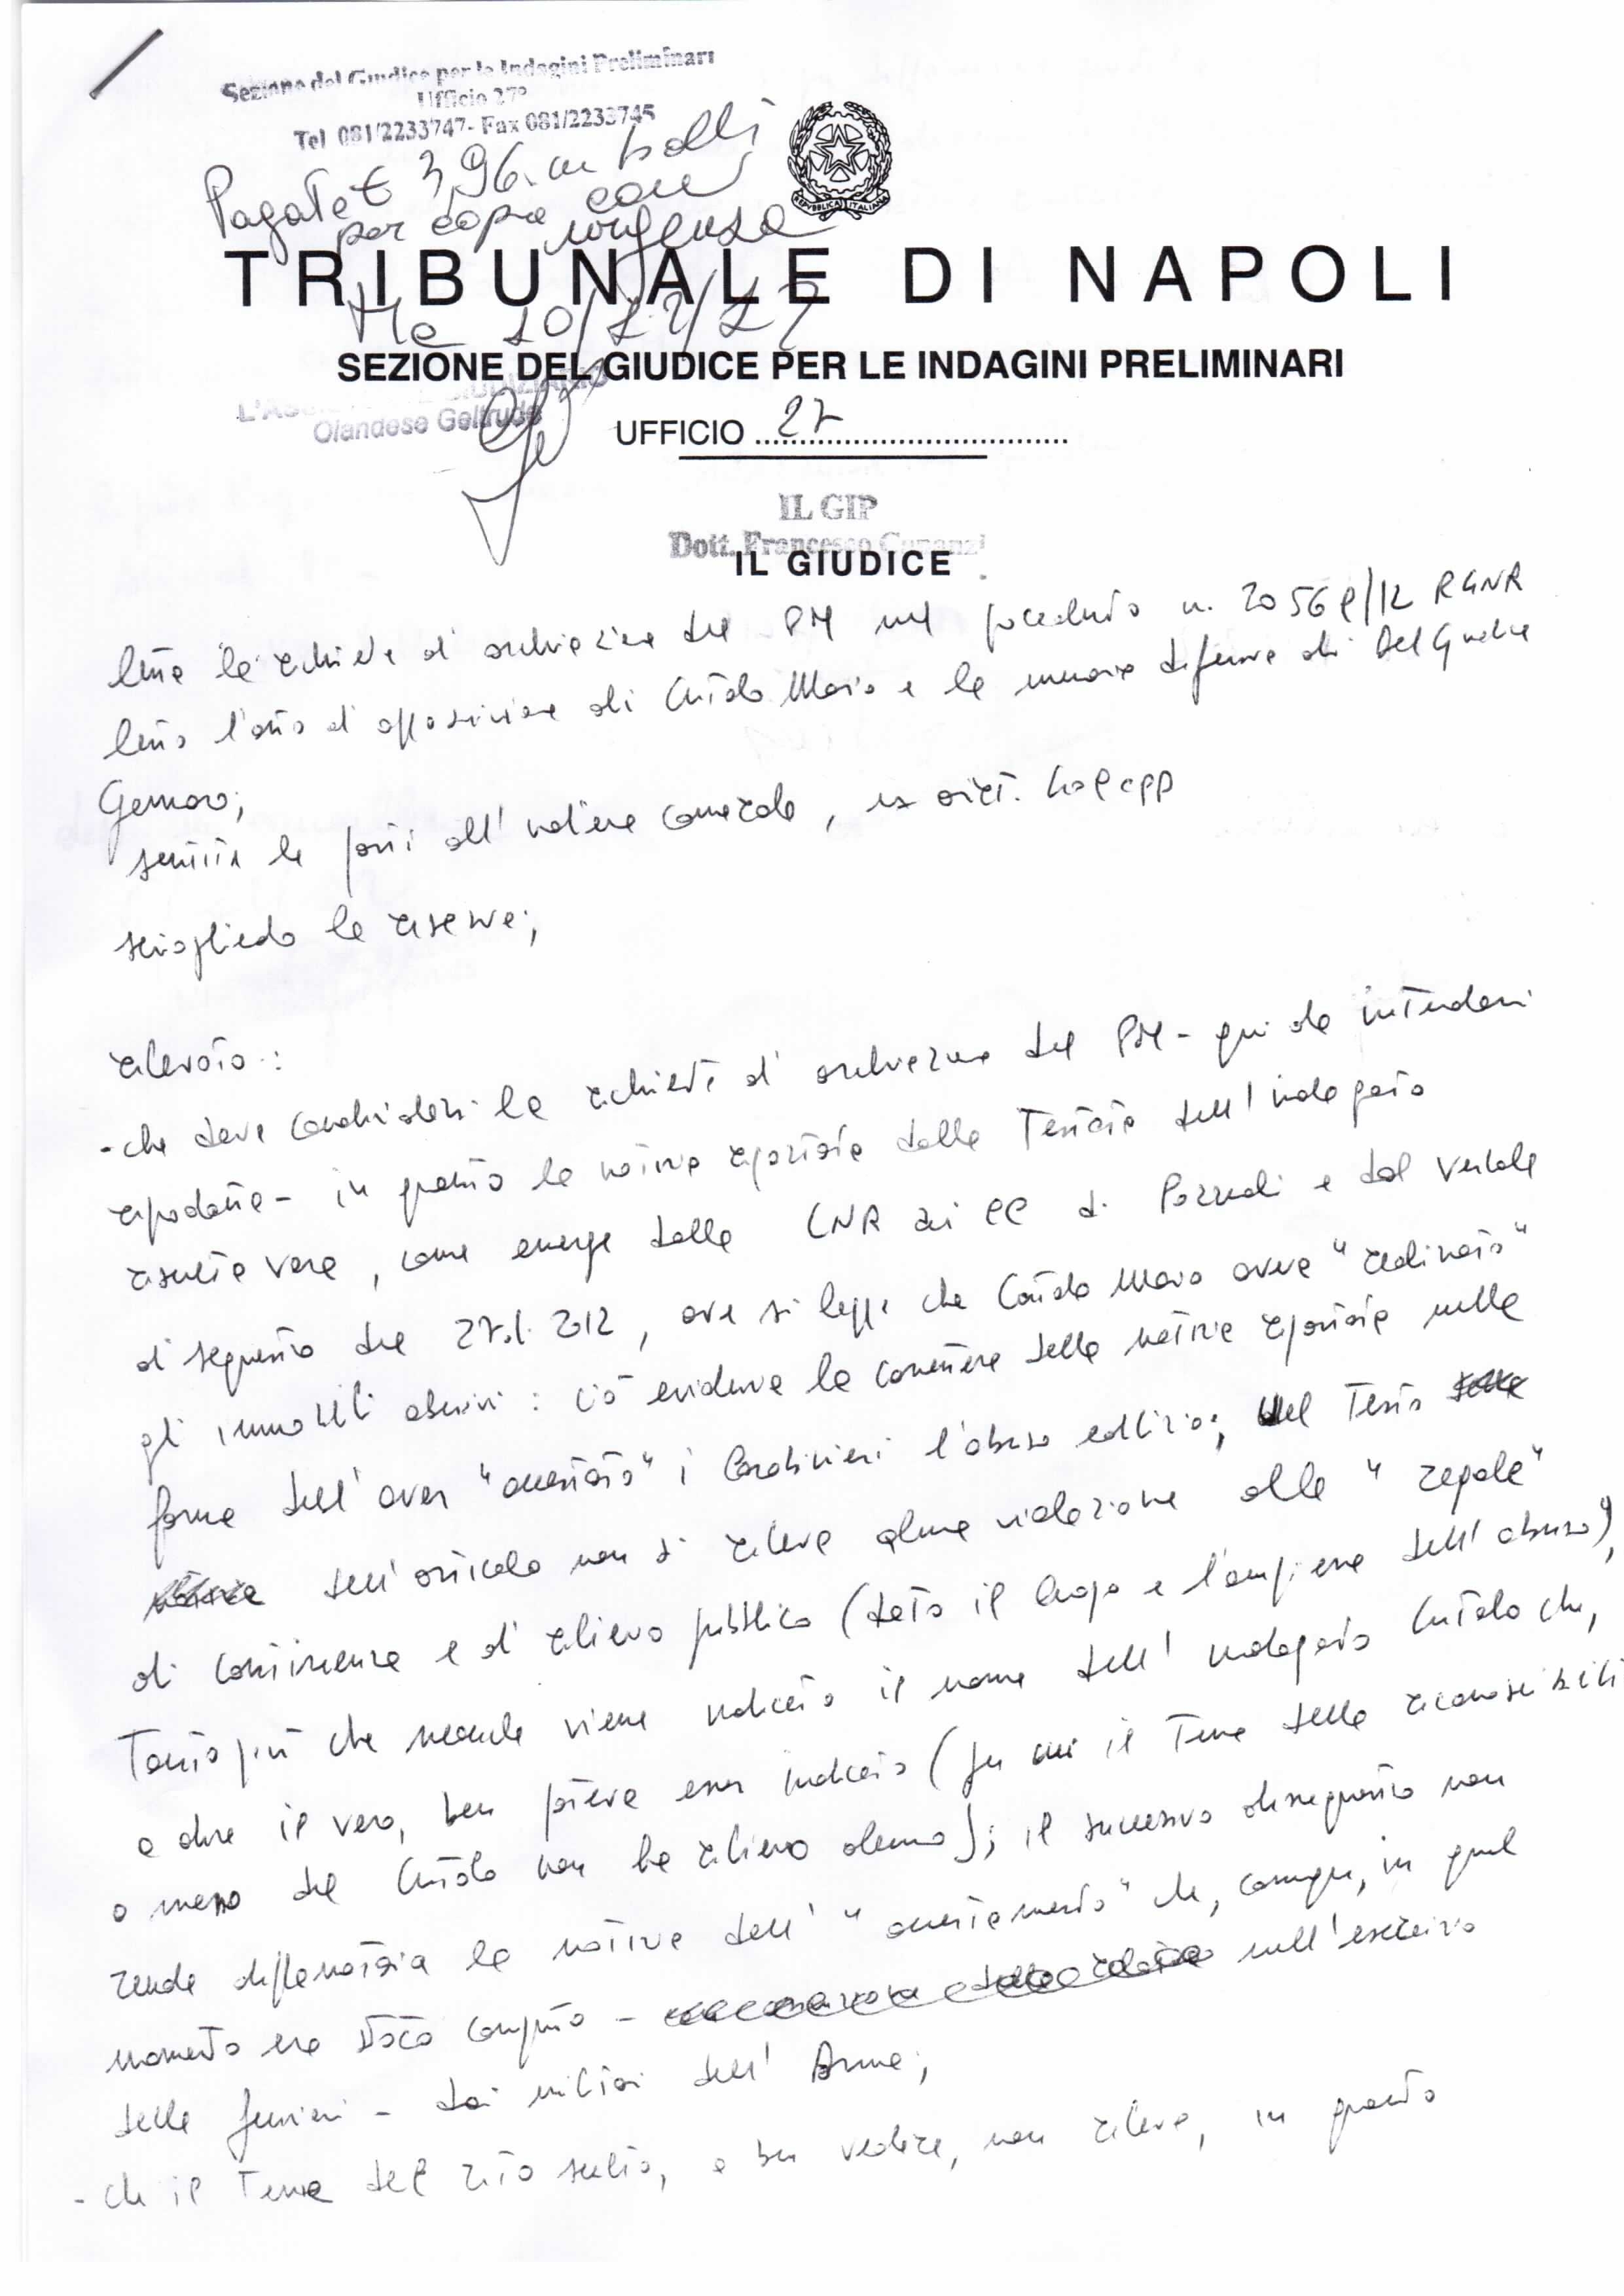 Sezione del Giudice per le Indagini Preliminari
Ufficio 27°
Tel 081/2233747- Fax 081/2233745
Pagate € 3,96 in bolli
per copia con
urgenza
REPVBBLICA ITALIANA
TRIBUNALE DI NAPOLI
Na 20/12/12
SEZIONE DEL GIUDICE PER LE INDAGINI PRELIMINARI
L'ASSISTENTE GIUDIZIARIO
Olandese Geltrude
UFFICIO 27
IL GIP
Dott. Francesco
IL GIUDICE
letta la richiesta di archiviazione del PM nel procedimento n. RGNR
letto l'atto di opposizione di Mario e la memoria difensiva di Del Giudice
Gennaro;
sentite le parti all'udienza camerale, ex art. 409 cpp
sciogliendo la riserva;
rilevato:
- che deve condividersi la richiesta di archiviazione del PM - qui da intendersi
riportata - in quanto la notizia riportata dalla testata dell'indagato
risulta vera, come emerge dalla CNR dei CC di Pozzuoli e dal verbale
di sequestro del 2012, ove si legge che Mario aveva "realizzato"
gli immobili abusivi: ciò evidenzia la della notizia riportata nella
forma dell'aver "accertato" i Carabinieri l'abuso edilizio; nel testo
dell'articolo non si rileva alcuna violazione alle "regole"
di continenza e di rilievo pubblico (dato il luogo e l'ampiezza dell'abuso),
tanto più che neanche viene indicato il nome dell'indagato che,
a dire il vero, ben poteva esser indicato (per cui il tema della riconoscibilità
o meno del non ha rilievo alcuno); il successivo dissequestro non
rende diffamatoria la notizia dell'"accertamento" che, comunque, in quel
momento era stato compiuto - nell'esercizio
delle funzioni - dai militari dell'Arma;
- che il tema del sito, a ben vedere, non rileva, in quanto